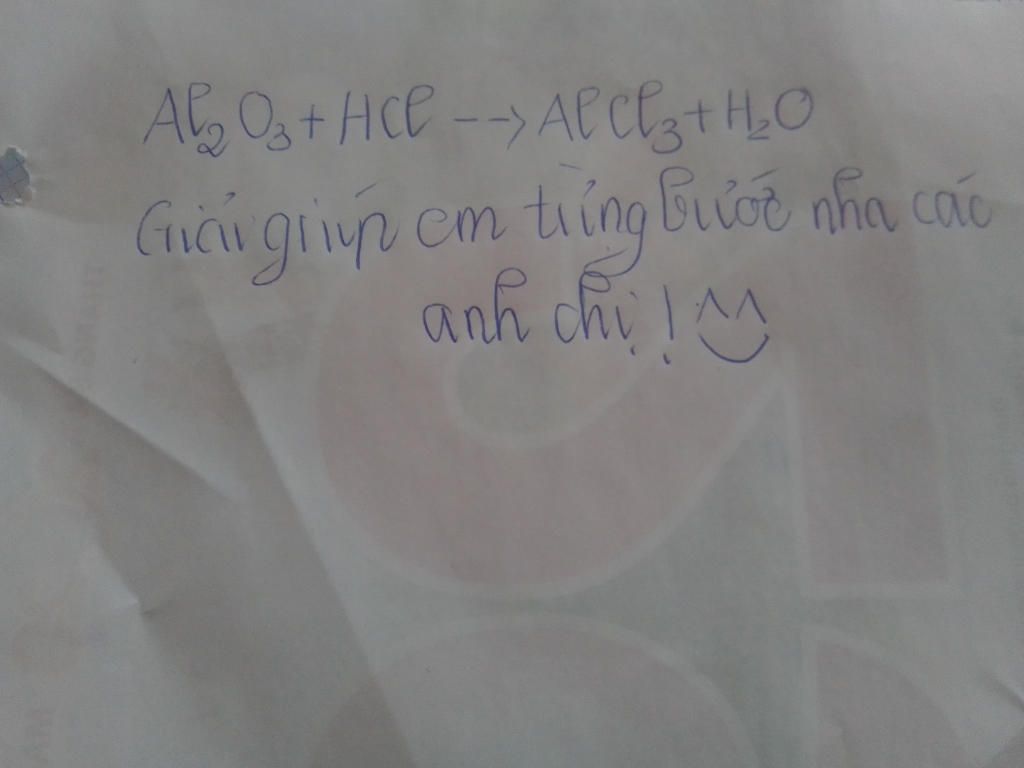 Al₂O₃ + HCl --> AlCl₃ + H₂O
Giải giúp em từng bước nha các
anh chị! ^^